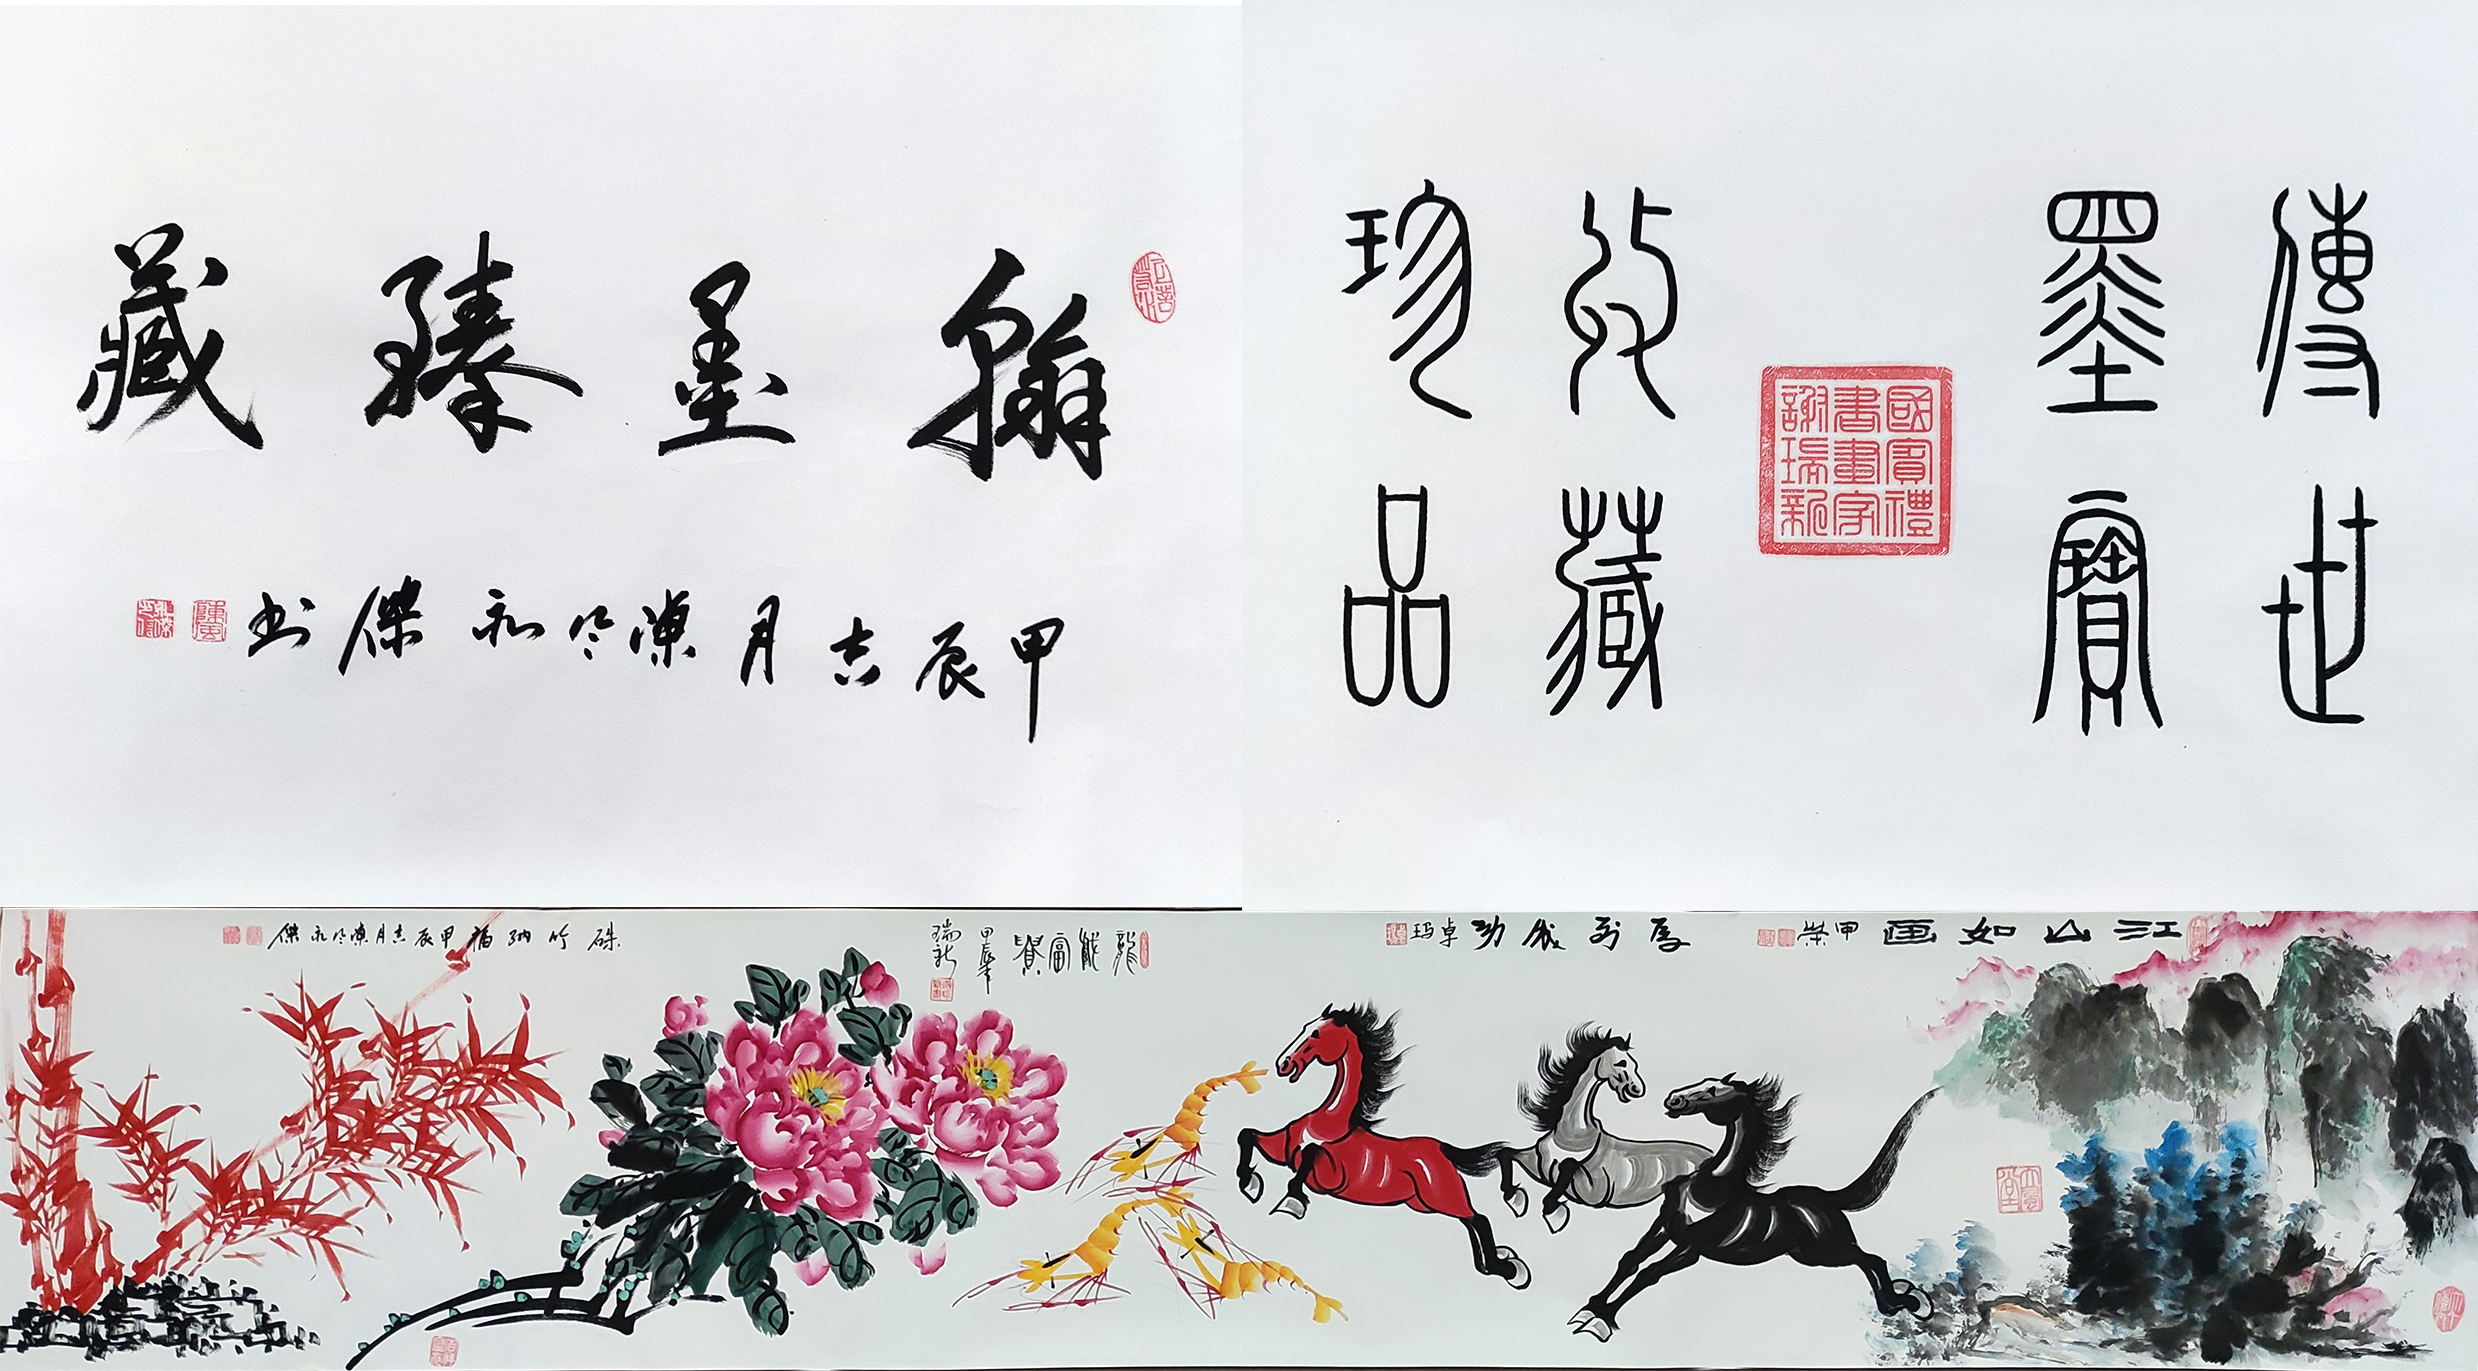 翰墨臻藏
甲辰吉月陳令永傑书
傳世
墨寶
國賓禮
書畫家
謝瑞新
收藏
珍品
江山如画
甲
荣
馬到成功
卓玛
龍
富貴
甲辰年
瑞新
硃竹納福
甲辰吉月陳令永傑